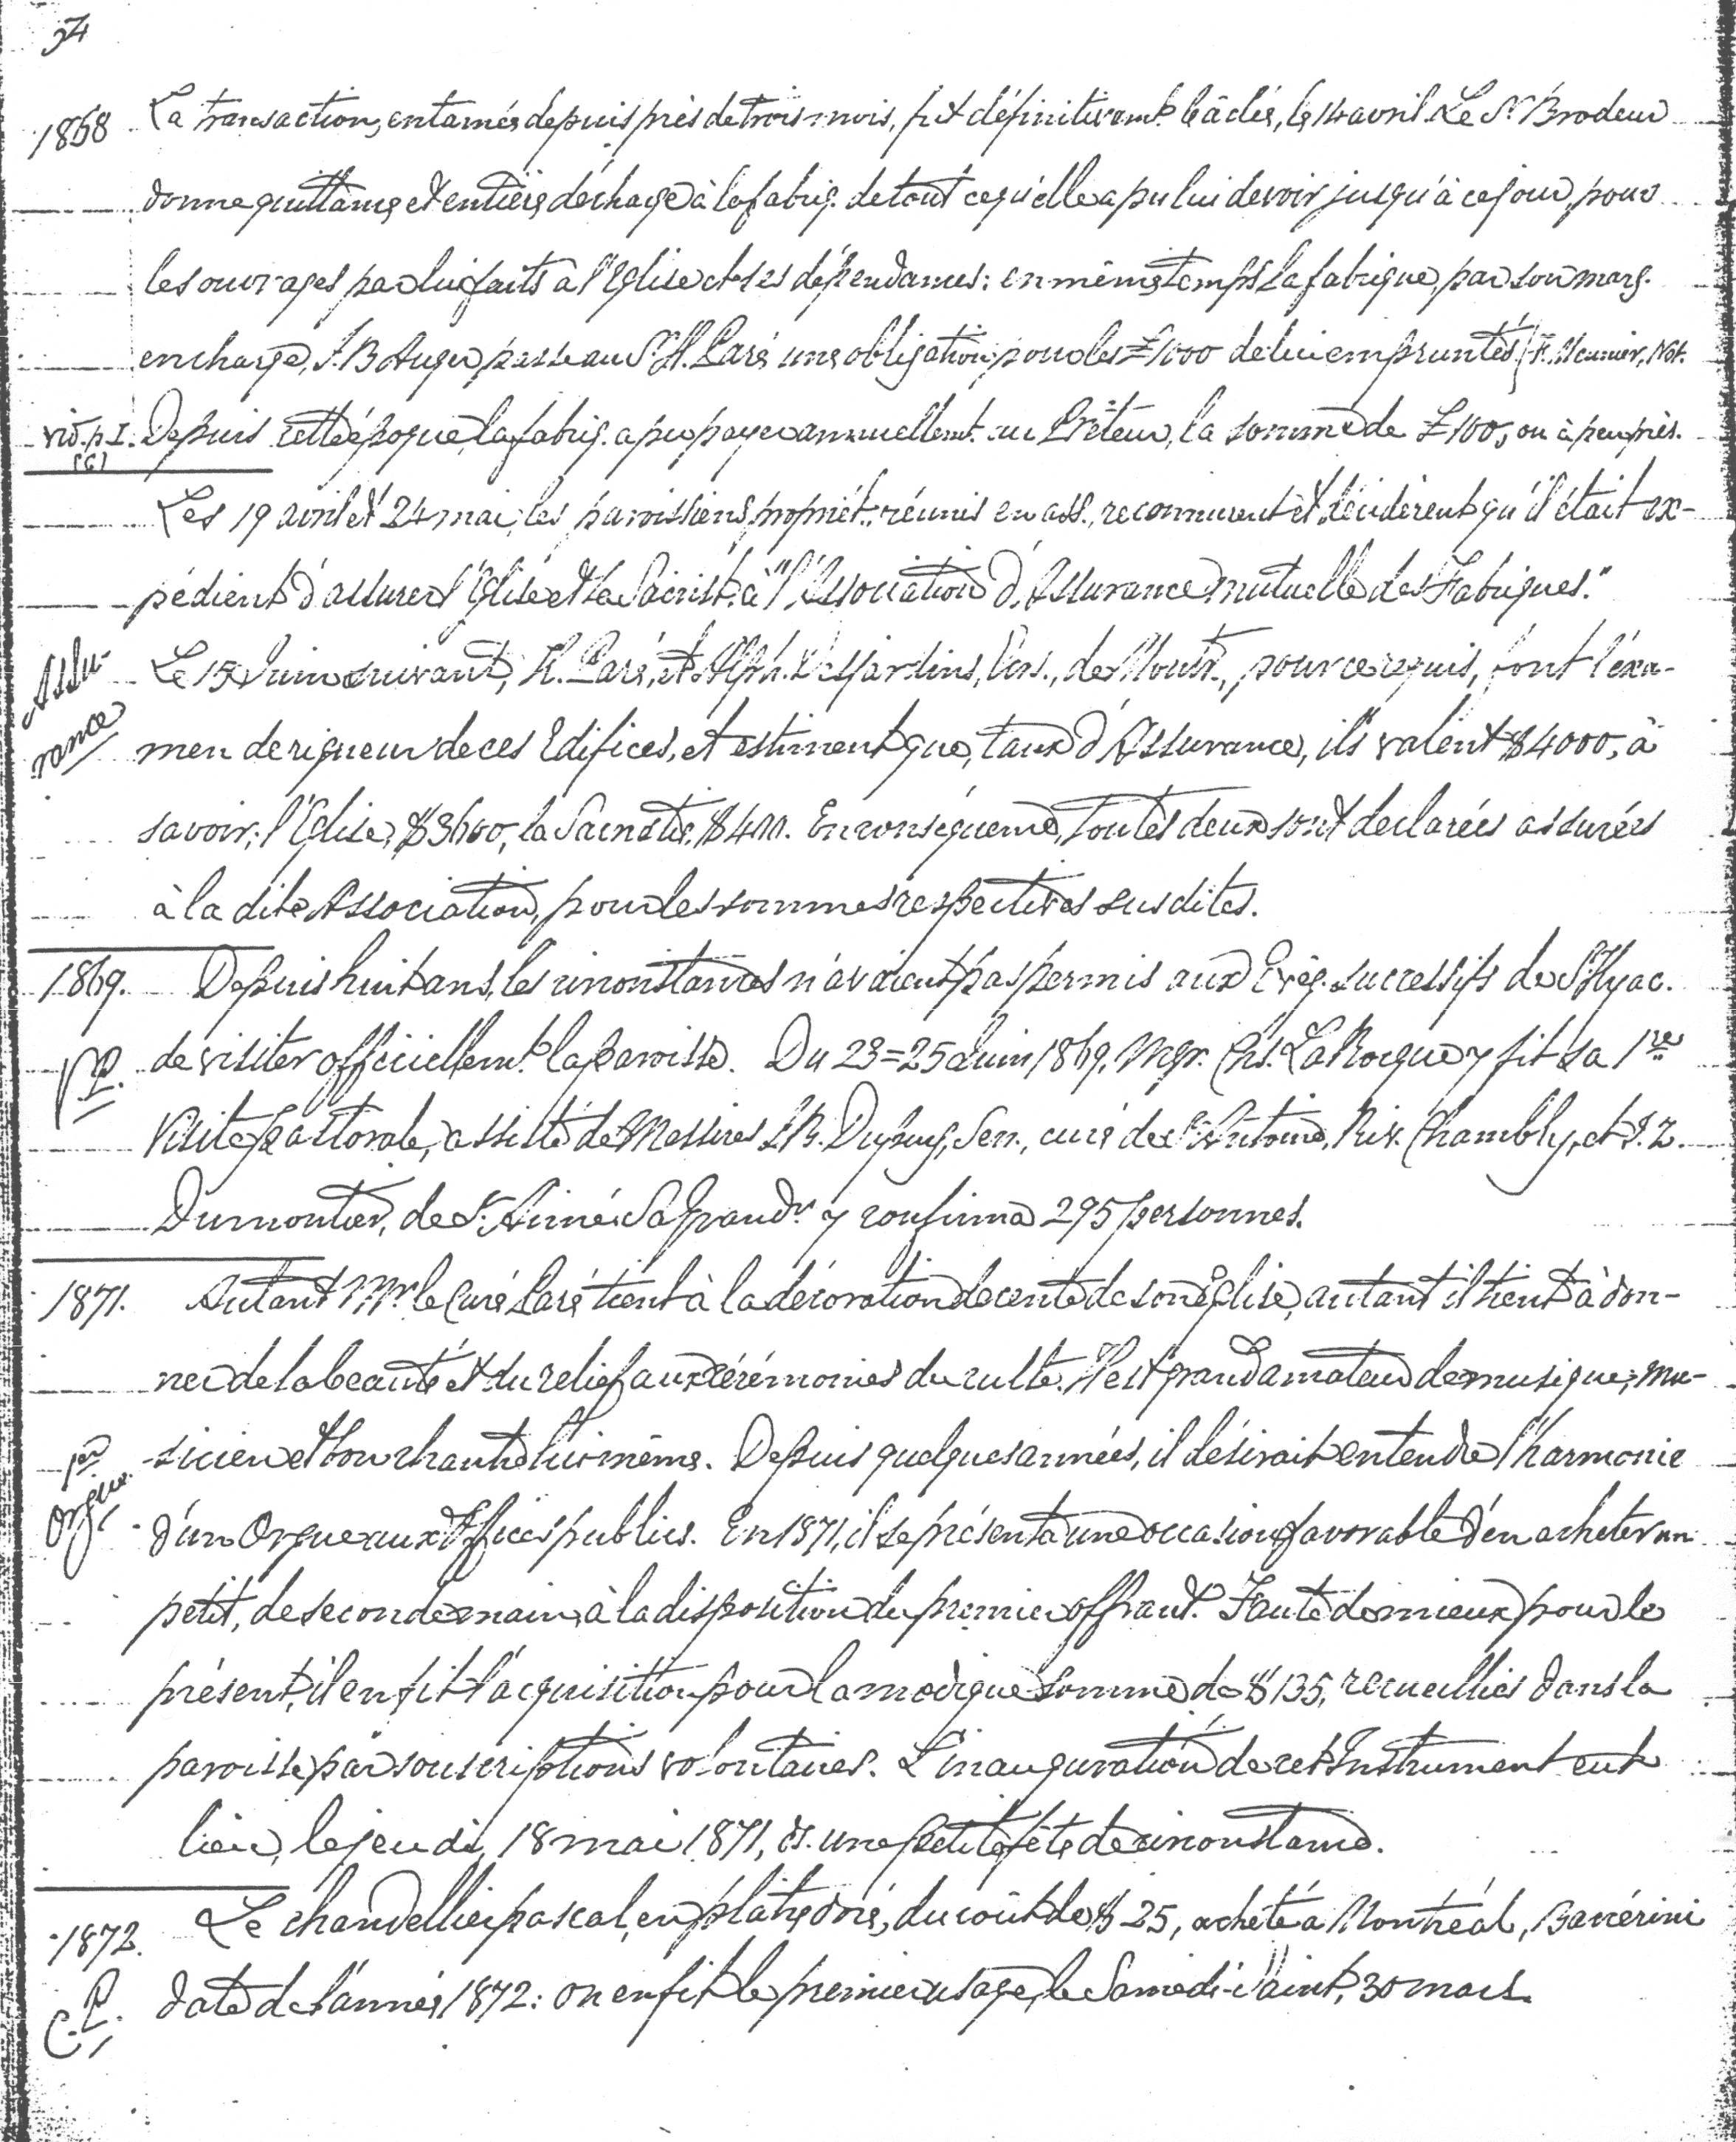 34
1868 La transaction, entamée depuis près de trois mois, fut définitivemt. bâclée, le 14 avril. Le Sr. Brodeur
donne quittance et entière décharge à la fabriq. de tout ce qu'elle a pu lui devoir jusqu'à ce jour, pour
les ouvrages par lui faits à l'Eglise et ses dépendances: en même temps la fabrique, par son marg.
en charge, J. B. Auger, passe au Sr. H. Paré une obligation pour les £1000 de lui empruntés (F. Meunier, Not.
vid. p. I. (6) Depuis cette époque, la fabriq. a pu payer annuellemt. au Prêteur, la somme de £100, ou à peu près.
Les 19 avril et 24 mai, les paroissiens propriét. réunis en ass., reconnurent et décidèrent qu'il était ex-
pédient d'assurer l'Eglise et la Sacrist. à "l'Association d'Assurance mutuelle des Fabriques."
Assu-
rance
Le 15 Juin suivant, H. Paré, et Alph. Desjardins, de Montr., pour ce requis, font l'exa-
men de rigueur de ces Edifices, et estiment que, taux d'Assurance, ils valent $4000, à
savoir; l'Eglise, $3600, la Sacristie, $400. En conséquence, toutes deux sont declarées assurées
à la dite Association, pour les sommes respectives susdites.
1869. Depuis huit ans, les circonstances n'avaient pas permis aux Evêq. successifs de St. Hyac.
V.P. de visiter officiellemt. la paroisse. Du 23=25 Juin 1869, Mgr. Chs. LaRocque y fit sa 1re
Visite pastorale, assisté de Messires L.B. Dupuy, Sen., curé de St. Antoine, Riv. Chambly, et S. Z.
Dumontier, de St. Aimé. Sa Grandr. y confirma 295 personnes.
1871. Autant Mr. le Curé Paré tient à la décoration decente de son Eglise, autant il tient à don-
ner de la beauté et du relief aux cérémonies du culte. Il est grand amateur de musique; mu-
1er Orgue. sicien et bon chantre lui même. Depuis quelques années, il désirait entendre l'harmonie
d'un Orgue aux Offices publics. En 1871, il se présenta une occasion favorable d'en acheter un
petit, de seconde main, à la disposition du premier offrant. Faute de mieux pour le
présent, il en fit l'acquisition pour la modique somme de $135, recueillies dans la
paroisse par souscriptions volontaires. L'inauguration de cet Instrument eut
lieu, le jeudi, 18 mai 1871, ds. une petite fête de circonstance.
1872. Le chandellier pascal, en plâtre doré, du coût de $25, acheté à Montréal,
C.P. date de l'année 1872: on en fit le premier usage, le Samedi-Saint, 30 mars.